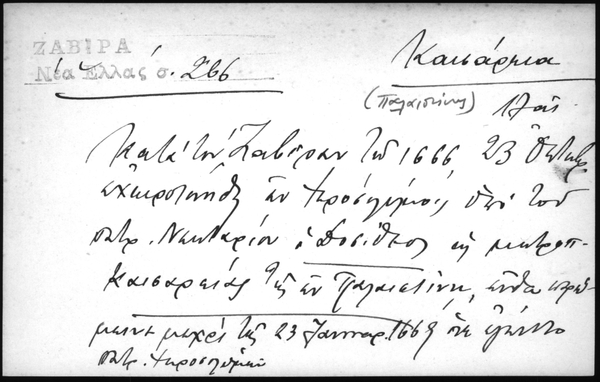 ΖΑΒΙΡΑ
Νέα Ελλάς σ. 266
Καισάρεια
(Παλαιστίνης)
Κατά τον Ζαβίραν τω 1666 23 Οκτωβρ
εχειροτονήθη εν Ιεροσολύμοις υπό του
πατρ. Νεκταρίου ο Δοσίθεος εις μητροπ-
Καισαρείας της εν Παλαιστίνη, ένθα παρέ-
μεινε μέχρι της 23 Ιανουαρ. 1669 ότε εγένετο
πατρ. Ιεροσολύμων